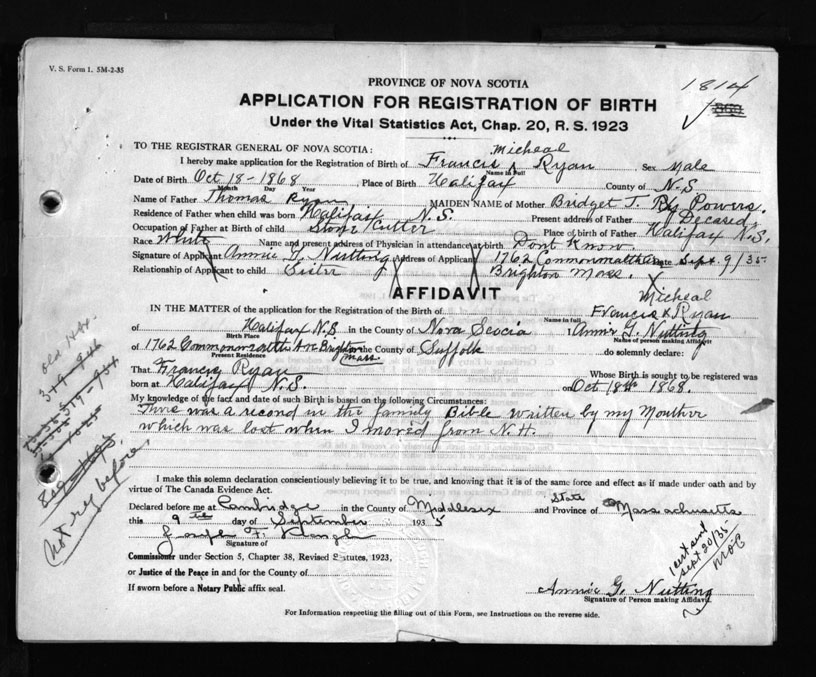 V. S. Form 1. 5M-2-35
1814
PROVINCE OF NOVA SCOTIA
APPLICATION FOR REGISTRATION OF BIRTH
Under the Vital Statistics Act, Chap. 20, R. S. 1923
TO THE REGISTRAR GENERAL OF NOVA SCOTIA:
Micheal
I hereby make application for the Registration of Birth of Francis Ryan Sex Male
Name in full
Date of Birth Oct 18-1868, Place of Birth Halifax County of N-S
Month Day Year
Name of Father Thomas Ryan MAIDEN NAME of Mother Bridget T. Powers.
Residence of Father when child was born Halifax N.S. Present address of Father Decased,
Occupation of Father at Birth of child Stone Cutter Place of birth of Father Halifax N.S.
Race White Name and present address of Physician in attendance at birth Dont Know.
Signature of Applicant Annie G. Nutting Address of Applicant 1762 Commonwealth Ave Date Sept. 9/35
Relationship of Applicant to child Sister Brighton Mass.
AFFIDAVIT
Micheal
IN THE MATTER of the application for the Registration of Birth of Francis Ryan
Name in full
of Halifax N.S in the County of Nova Scocia I Annie G. Nutting
Birth Place Name of person making Affidavit
of 1762 Commonwealth Ave Brighton Mass the County of Suffolk do solemnly declare:
Present Residence
That Francis Ryan Whose Birth is sought to be registered was
born at Halifax N.S. on Oct 18th 1868.
My knowledge of the fact and date of such Birth is based on the following Circumstances:
There was a record in the family Bible written by my Mouther
which was lost when I moved from N.H.
I make this solemn declaration conscientiously believing it to be true, and knowing that it is of the same force and effect as if made under oath and by
virtue of The Canada Evidence Act.
State
Declared before me at Cambridge in the County of Middlesex and Province of Massachusetts
this 9th day of September 1935
Joseph F.
Signature of
Commissioner under Section 5, Chapter 38, Revised Statutes, 1923,
or Justice of the Peace in and for the County of
If sworn before a Notary Public affix seal.
Annie G. Nutting
Signature of Person making Affidavit.
For Information respecting the filling out of this Form, see Instructions on the reverse side.
old Hx.
349-946
Not reg before.
1 cert sent
Sept 20/35